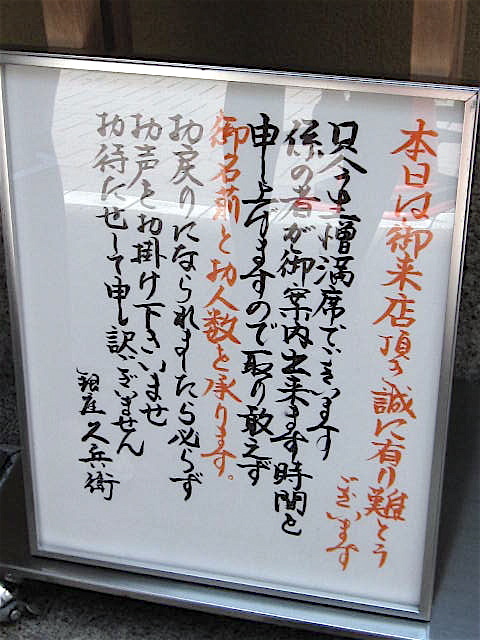 本日は御来店頂き誠に有り難とう
ございます
只今生憎満席でございます
係の者が御案内出来ます時間と
申し上げますので取り敢えず
御名前と御人数を承ります。
お戻りになられましたら必らず
お声をお掛け下さいませ
お待たせして申し訳ございません
銀座 久兵衛